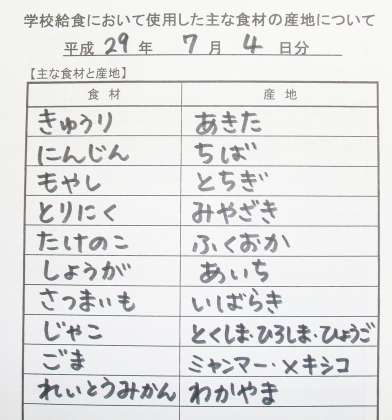 学校給食において使用した主な食材の産地について
平成 29 年 7 月 4 日分
【主な食材と産地】
食材 産地
きゅうり あきた
にんじん ちば
もやし とちぎ
とりにく みやざき
たけのこ ふくおか
しょうが あいち
さつまいも いばらき
じゃこ とくしま・ひろしま・ひょうご
ごま ミャンマー・メキシコ
れいとうみかん わかやま